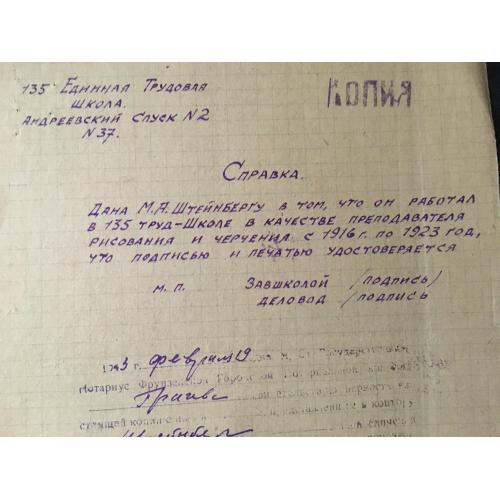 135 Единная Трудовая
Школа.
Андреевский Спуск N2
N37.
КОПИЯ
Справка.
Дана М.А. Штейнбергу в том, что он работал
в 135 труд-школе в качестве преподавателя
рисования и черчения с 1916 г. по 1923 год,
что подписью и печатью удостоверяется
м. п. Завшколой /подпись/
деловод /подпись
февраля 19
Нотариус Фрунзенской Городской
верность
стоящей копии
в контору